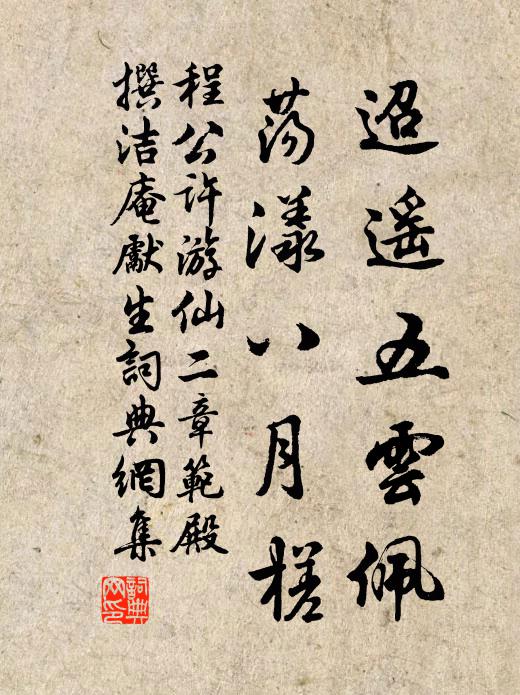 迢遥五雲佩
荡漾八月槎
程公许游仙二章範殿
撰洁庵獻生詞典網集
詞典网印